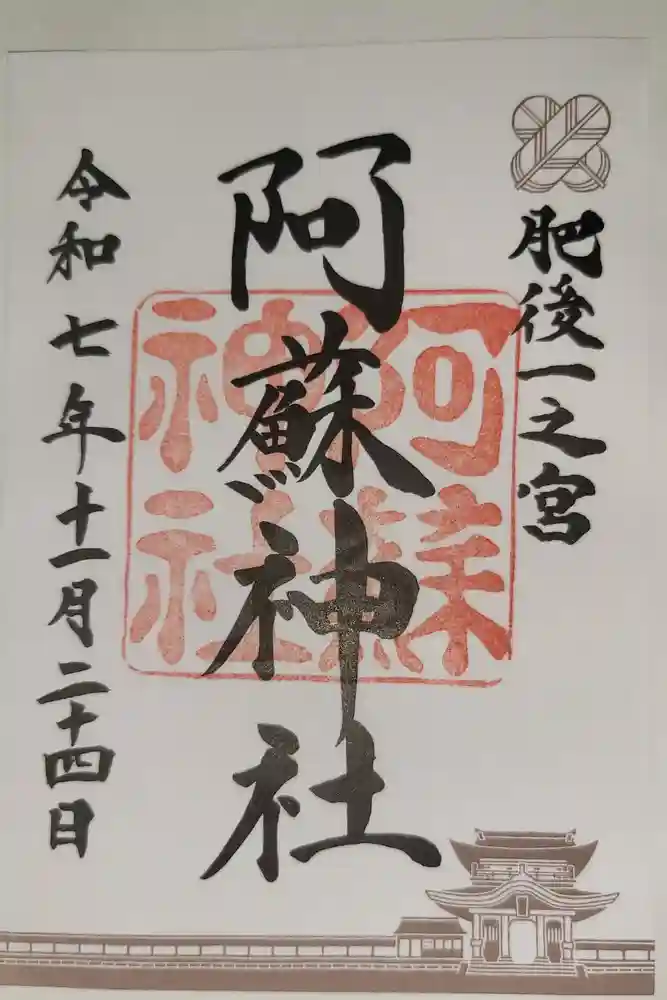 肥後一之宮
阿蘇神社
阿蘇神社
令和七年十一月二十四日